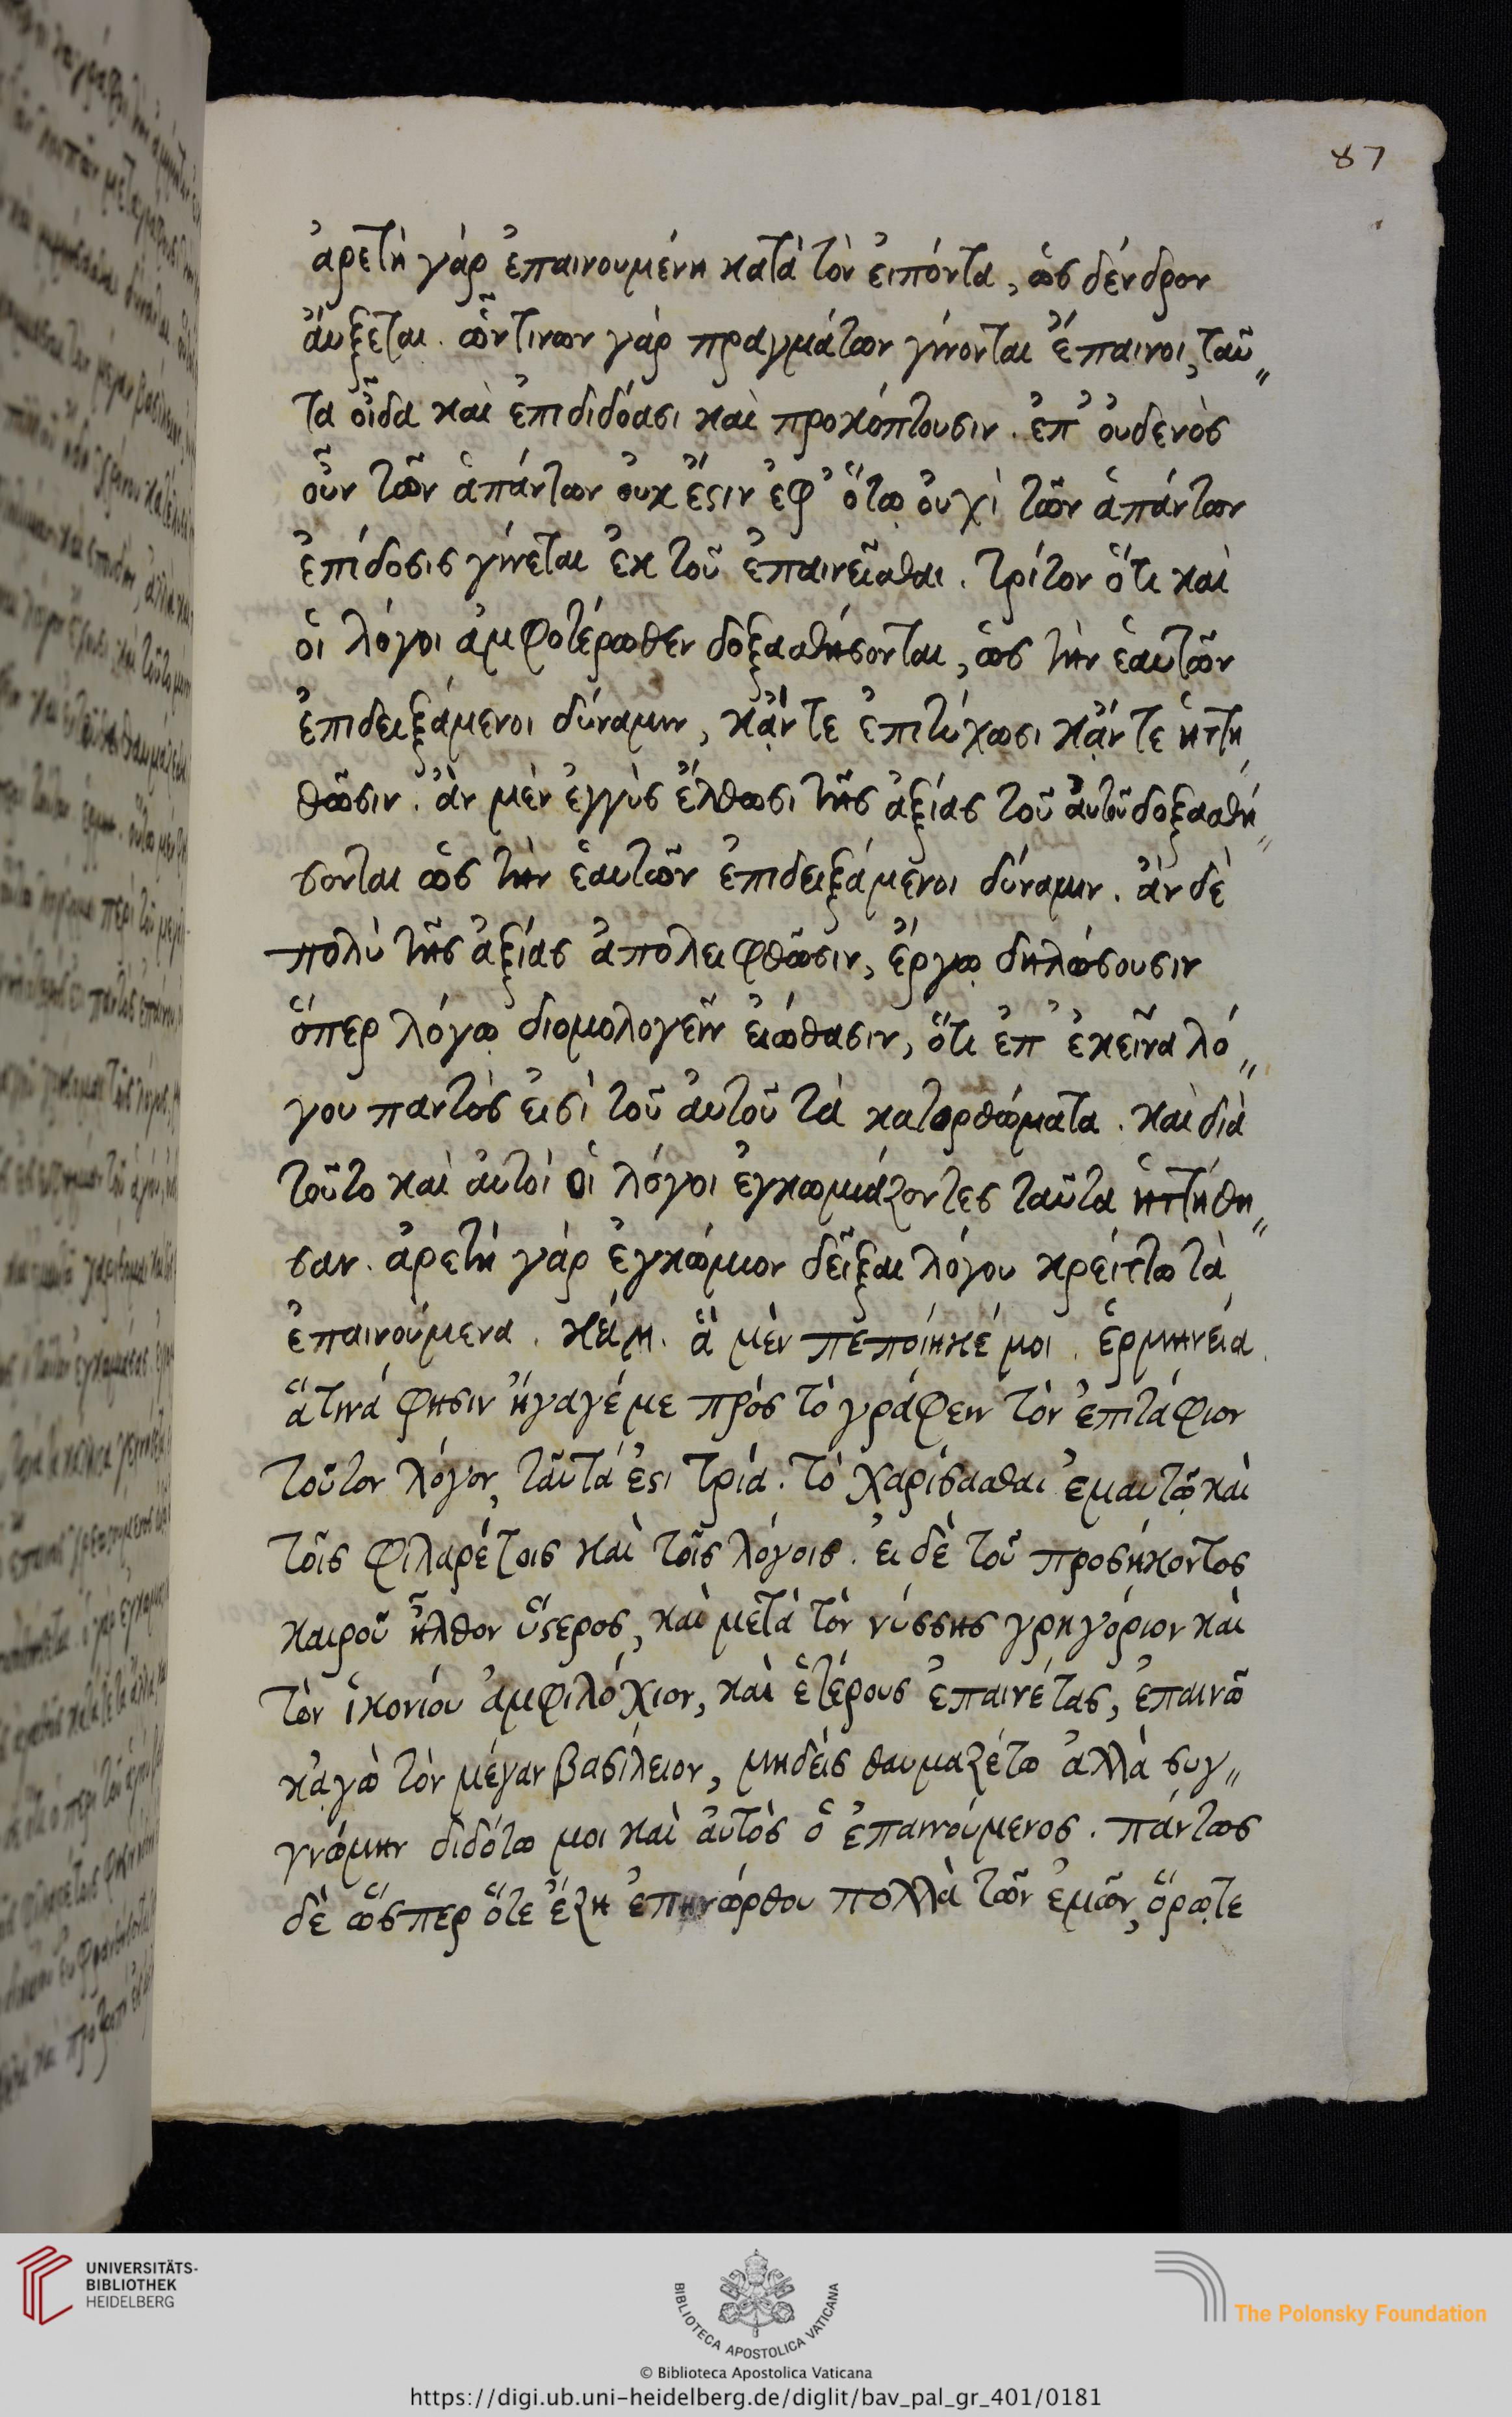 87
ἀρετὴ γὰρ ἐπαινουμένη κατὰ τὸν ἐιπόντα, ὡς δένδρον
ἄυξεται. ὧντινων γὰρ πραγμάτων γίνονται ἔπαινοι, ταῦ〃
τα οἶδα καὶ ἐπιδιδόασι καὶ προκόπτουσιν. ἐπ' ὀυδενὸς
οὖν τῶν ἁπάντων ὀυκ ἔϛιν ἐφ' ὅτῳ ὀυχὶ τῶν ἁπάντων
ἐπίδοσις γίνεται ἐκ τοῦ ἐπαινεῖσθαι. τρίτον ὅτι καὶ
ὁι λόγοι ἀμφοτέρωθεν δοξασθήσονται, ὡς τὴν ἑαυτῶν
ἐπιδειξάμενοι δύναμιν, κᾄν τε ἐπιτύχωσι κᾄν τε ἡττη
θῶσιν. ἂν μὲν ἐγγὺς ἔλθωσι τῆς ἀξίας τοῦ ἀυτοῦ δοξασθή〃
σονται ὡς τὴν ἑαυτῶν ἐπιδειξάμενοι δύναμιν. ἂν δὲ
πολὺ τῆς ἀξίας ἀπολειφθῶσιν, ἔργῳ δηλώσουσιν
ὅπερ λόγῳ διομολογεῖν ειώθασιν, ὅτι ἐπ' ἐκεῖνα λό〃
γου παντὸς εἰσὶ τοῦ ἀυτοῦ τὰ κατορθώματα. καὶ διὰ
τοῦτο καὶ ἀυτοὶ ὁι λόγοι ἐγκωμιάζοντες ταῦτα ἡττήθη〃
σαν. ἀρετὴ γὰρ ἐγκώμιον δεῖξαι λόγου κρείττω τὰ
ἐπαινούμενα. κείμ. ἃ μὲν πεποίηκέ μοι. ἑρμηνεία.
ἅτινά φησιν ἤγαγέ με πρὸς τὸ γράφειν τὸν ἐπιτάφιον
τοῦτον λόγον, ταῦτά ἐϛι τρία. τὸ χαρίσασθαι ἐμαυτῷ καὶ
τοῖς φιλαρέτοις καὶ τοῖς λόγοις. ει δὲ τοῦ προσήκοντος
καιροῦ ἦλθον ὕϛερος, καὶ μετὰ τὸν νύσσης γρηγόριον καὶ
τὸν ἰκονίου ἀμφιλόχιον, καὶ ἑτέρους ἐπαινέτας, ἐπαινῶ
κᾀγὼ τὸν μέγαν βασίλειον, μηδεὶς θαυμαζέτω ἀλλὰ συγ〃
γνώμην διδότω μοι καὶ ἀυτὸς ὁ ἐπαινούμενος. πάντως
δὲ ὥσπερ ὅτε ἔζη ἐπηνώρθου πολλὰ τῶν ἐμῶν, ὅρᾳτε
UNIVERSITÄTS-
BIBLIOTHEK
HEIDELBERG
BIBLIOTECA APOSTOLICA VATICANA
The Polonsky Foundation
© Biblioteca Apostolica Vaticana
https://digi.ub.uni-heidelberg.de/diglit/bav_pal_gr_401/0181